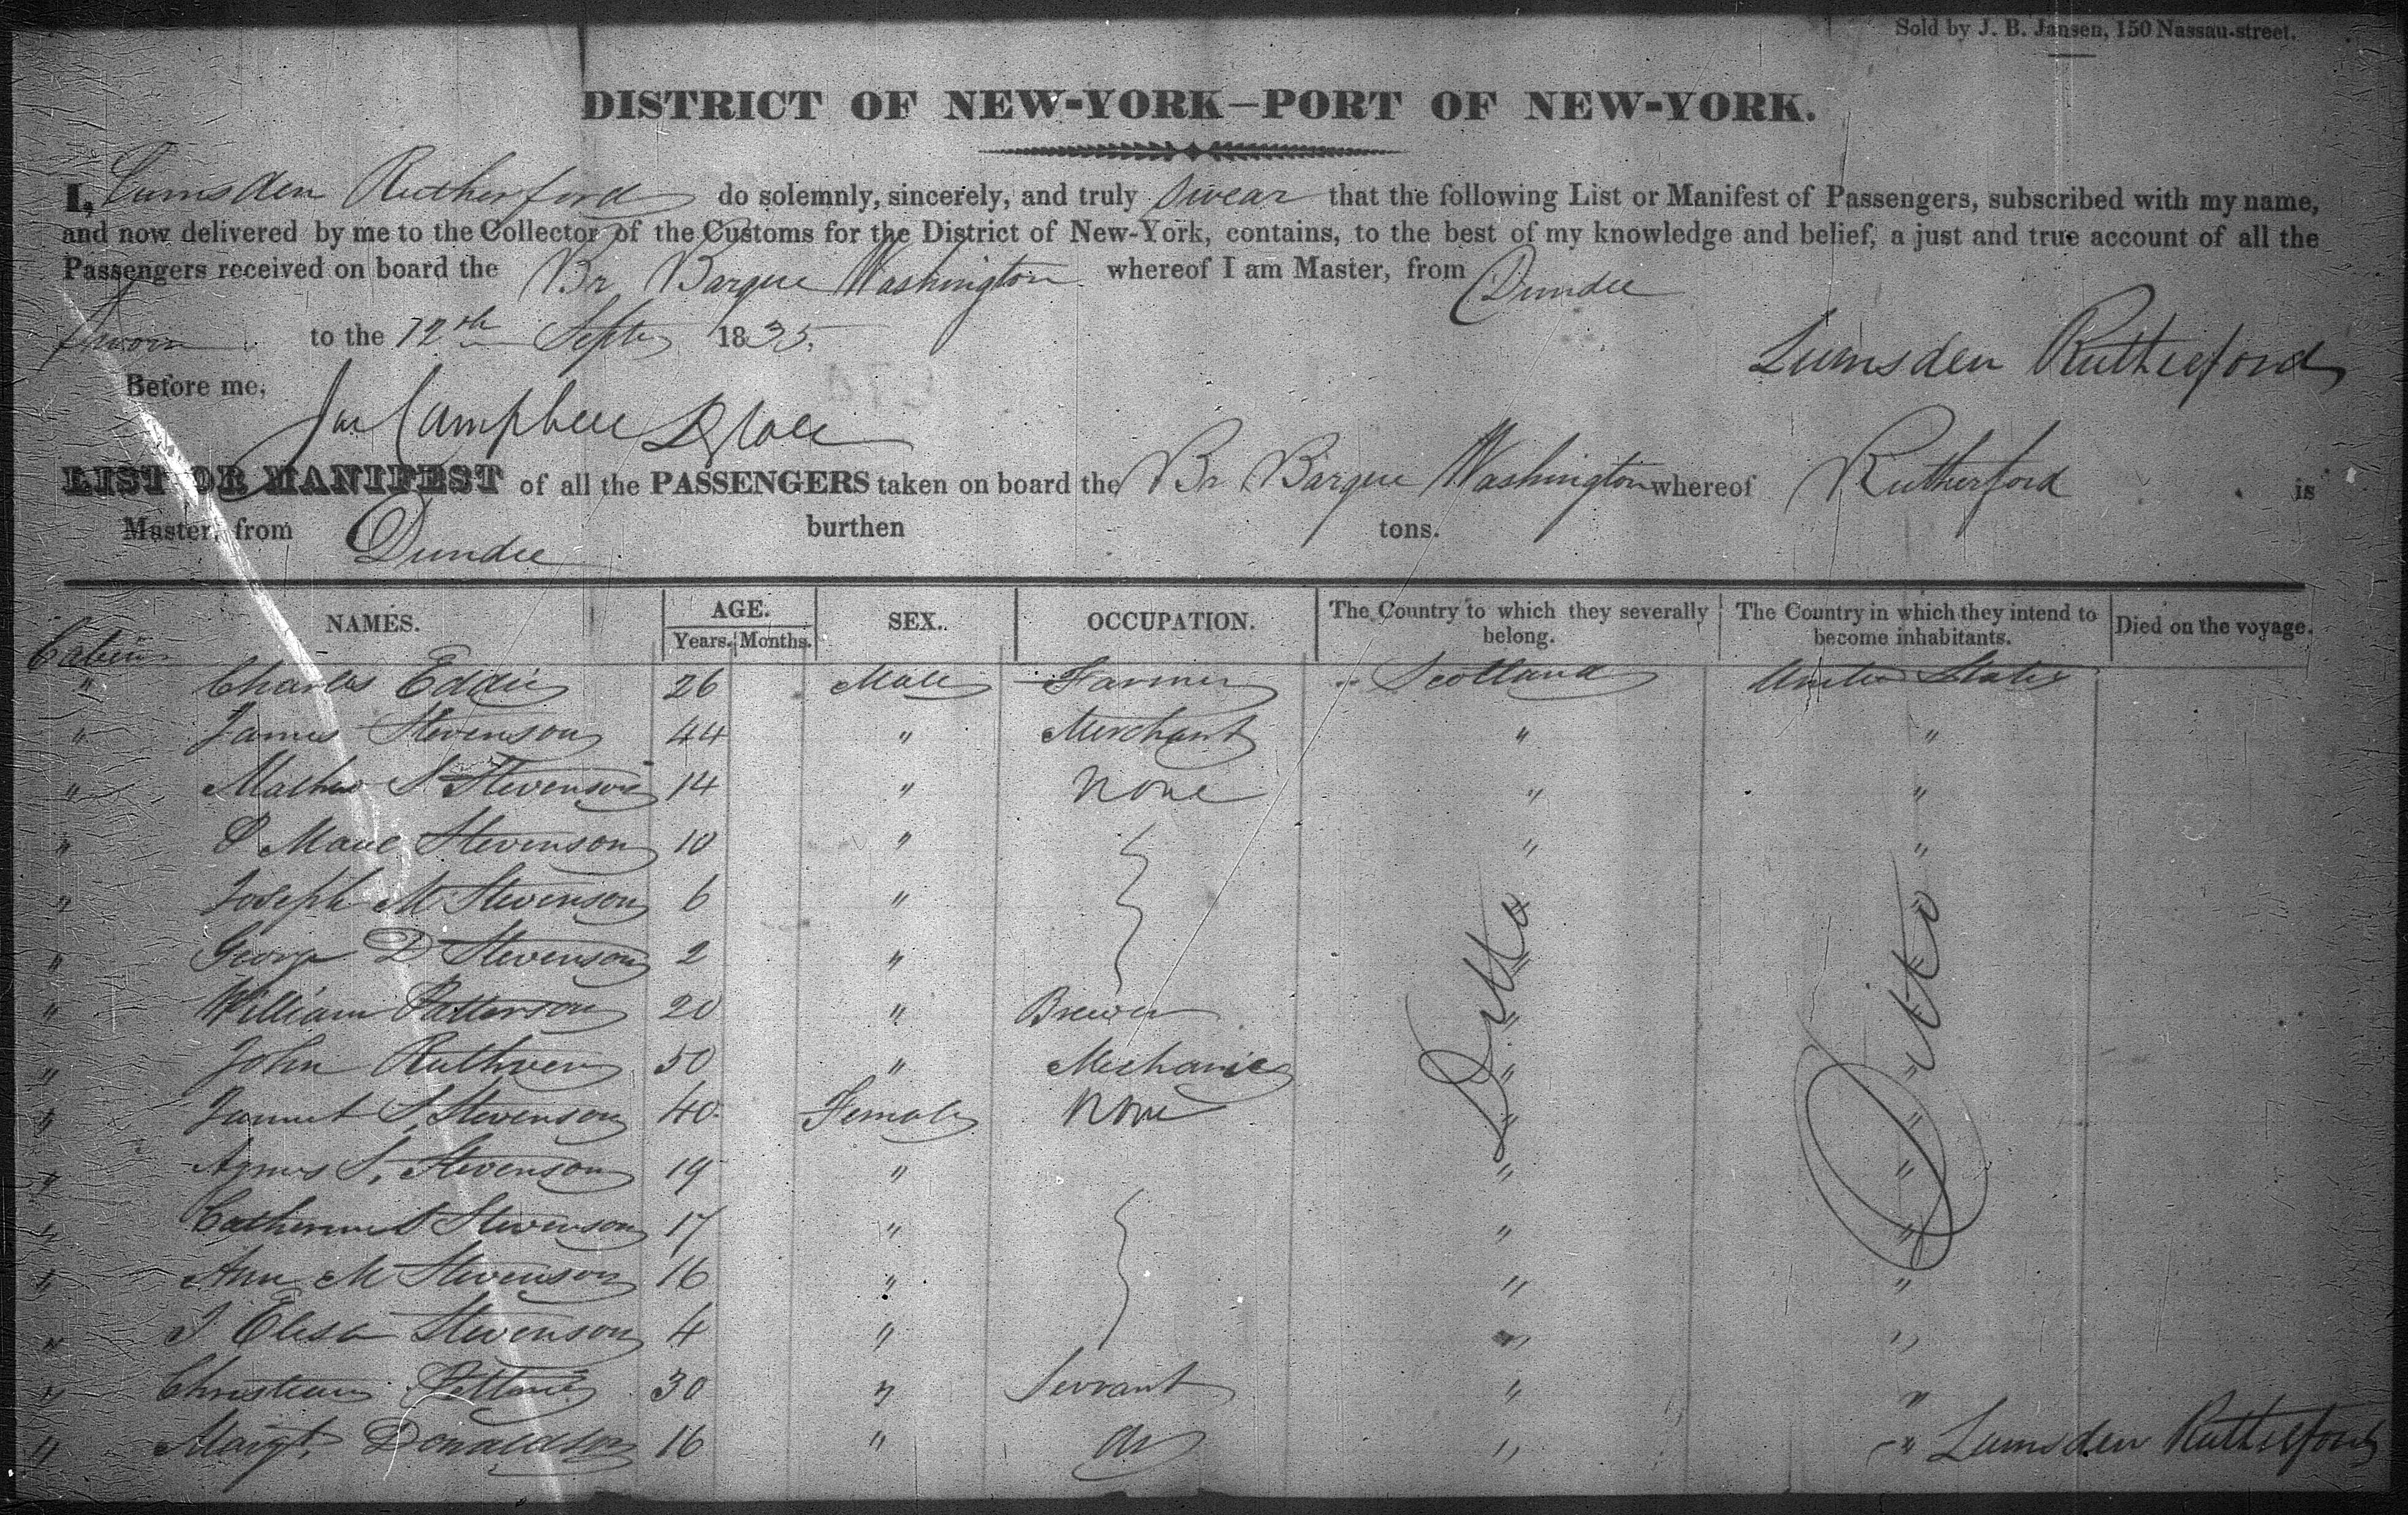 Sold by J. B. Jansen, 150 Nassau-street.
DISTRICT OF NEW-YORK—PORT OF NEW-YORK.
I, Lumsden Rutherford do solemnly, sincerely, and truly swear that the following List or Manifest of Passengers, subscribed with my name,
and now delivered by me to the Collector of the Customs for the District of New-York, contains, to the best of my knowledge and belief, a just and true account of all the
Passengers received on board the Br Barque Washington whereof I am Master, from Dundee
Sworn to the 12th Septr 1835.
Lumsden Rutherford
Before me,
Campbell
LIST OR MANIFEST of all the PASSENGERS taken on board the Br Barque Washington whereof Rutherford is
Master, from Dundee burthen tons.
NAMES. AGE. Years. Months. SEX. OCCUPATION. The Country to which they severally belong. The Country in which they intend to become inhabitants. Died on the voyage.
Cabin
" Charles Eddie 26 Male Farmer Scotland United States
" James Stevenson 44 " Merchant " "
" Mathew S Stevenson 14 " None " "
" Stevenson 10 " " "
" Joseph M Stevenson 6 " " "
" George D Stevenson 2 " " "
" William Patterson 20 " Brewer " "
" John Ruthven 50 " Mechanic " "
" S. Stevenson 40 Female None " "
" Agnes S. Stevenson 19 " " "
" Catherine S Stevenson 17 " " "
" Ann M Stevenson 16 " " "
" Stevenson 4 " " "
" Christian 30 " Servant " "
" Margt. Donaldson 16 " do " "
Ditto
Ditto
Lumsden Rutherford